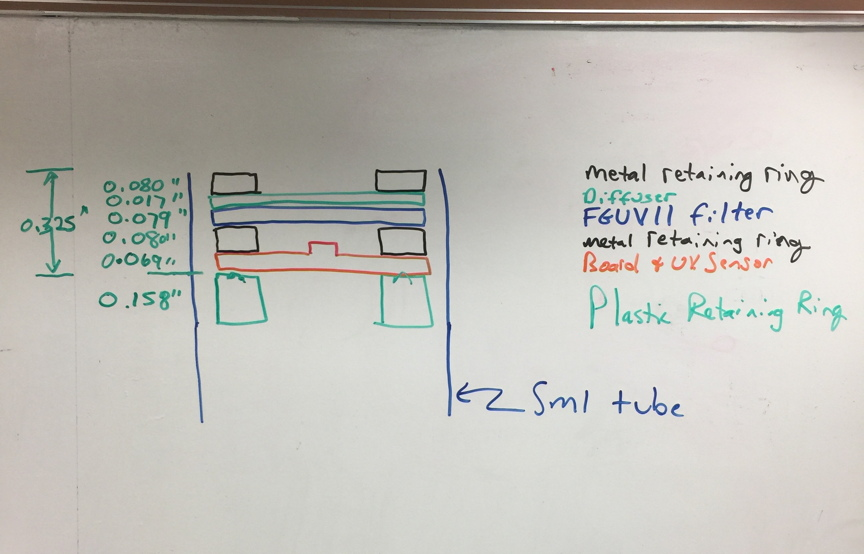 0.325"
0.080"
0.017"
0.079"
0.080"
0.069"
0.158"
metal retaining ring
Diffuser
FGUV11 filter
metal retaining ring
Board & UV Sensor
Plastic Retaining Ring
Sm1 tube